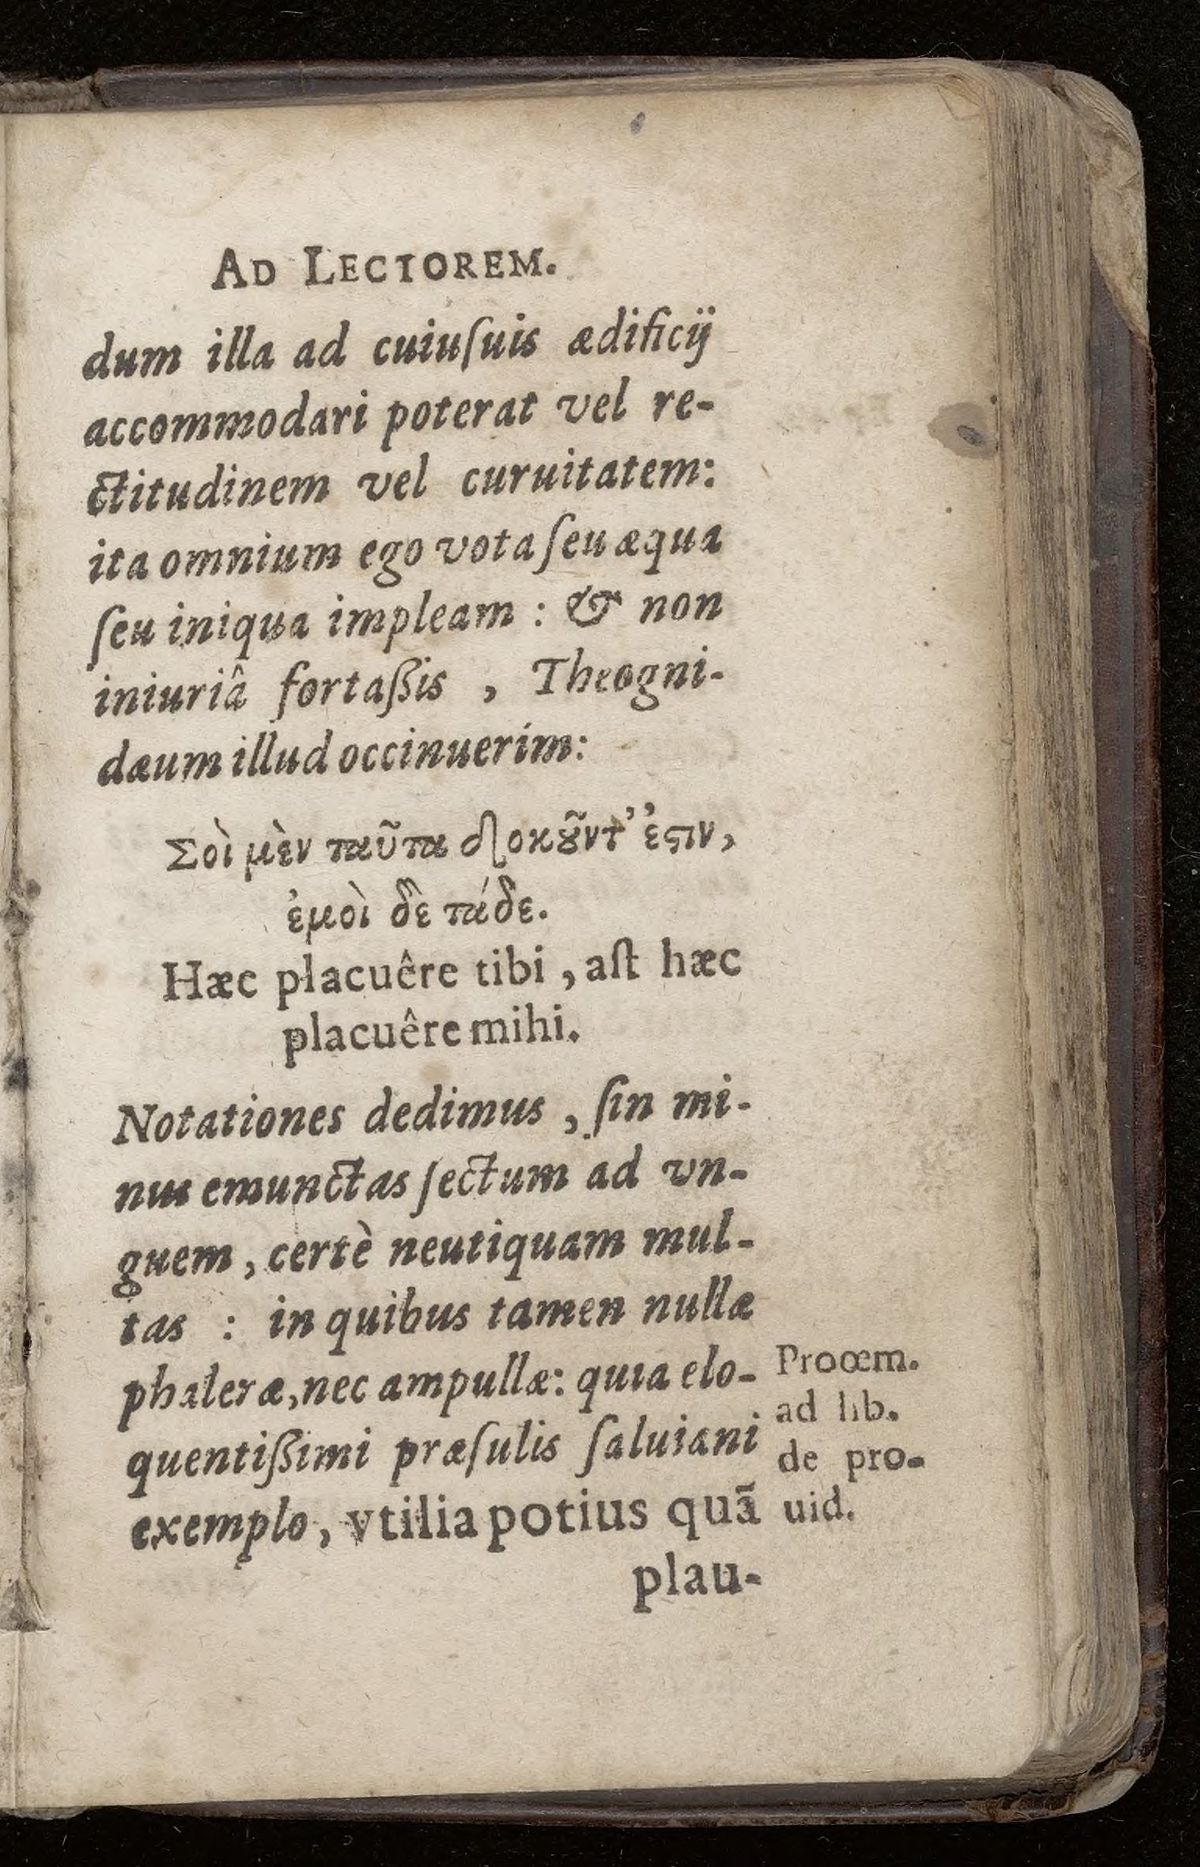 AD LECTOREM.
dum illa ad cuiuſuis ædificij
accommodari poterat vel re-
ctitudinem vel curuitatem:
ita omnium ego vota ſeu æqua
ſeu iniqua impleam : & non
iniuriâ fortaßis , Theogni-
dæum illud occinuerim:
Σοὶ μὲν ταῦτα δοκοῦντ' ἐστιν,
ἐμοὶ δὲ τάδε.
Hæc placuêre tibi , aſt hæc
placuêre mihi.
Notationes dedimus , ſin mi-
nus emunctas ſectum ad vn-
guem , certè neutiquam mul-
tas : in quibus tamen nullæ
phaleræ, nec ampullæ: quia elo-
quentißimi præſulis ſaluiani
exemplo, vtilia potius quã
plau-
Proœm.
ad lib.
de pro-
uid.